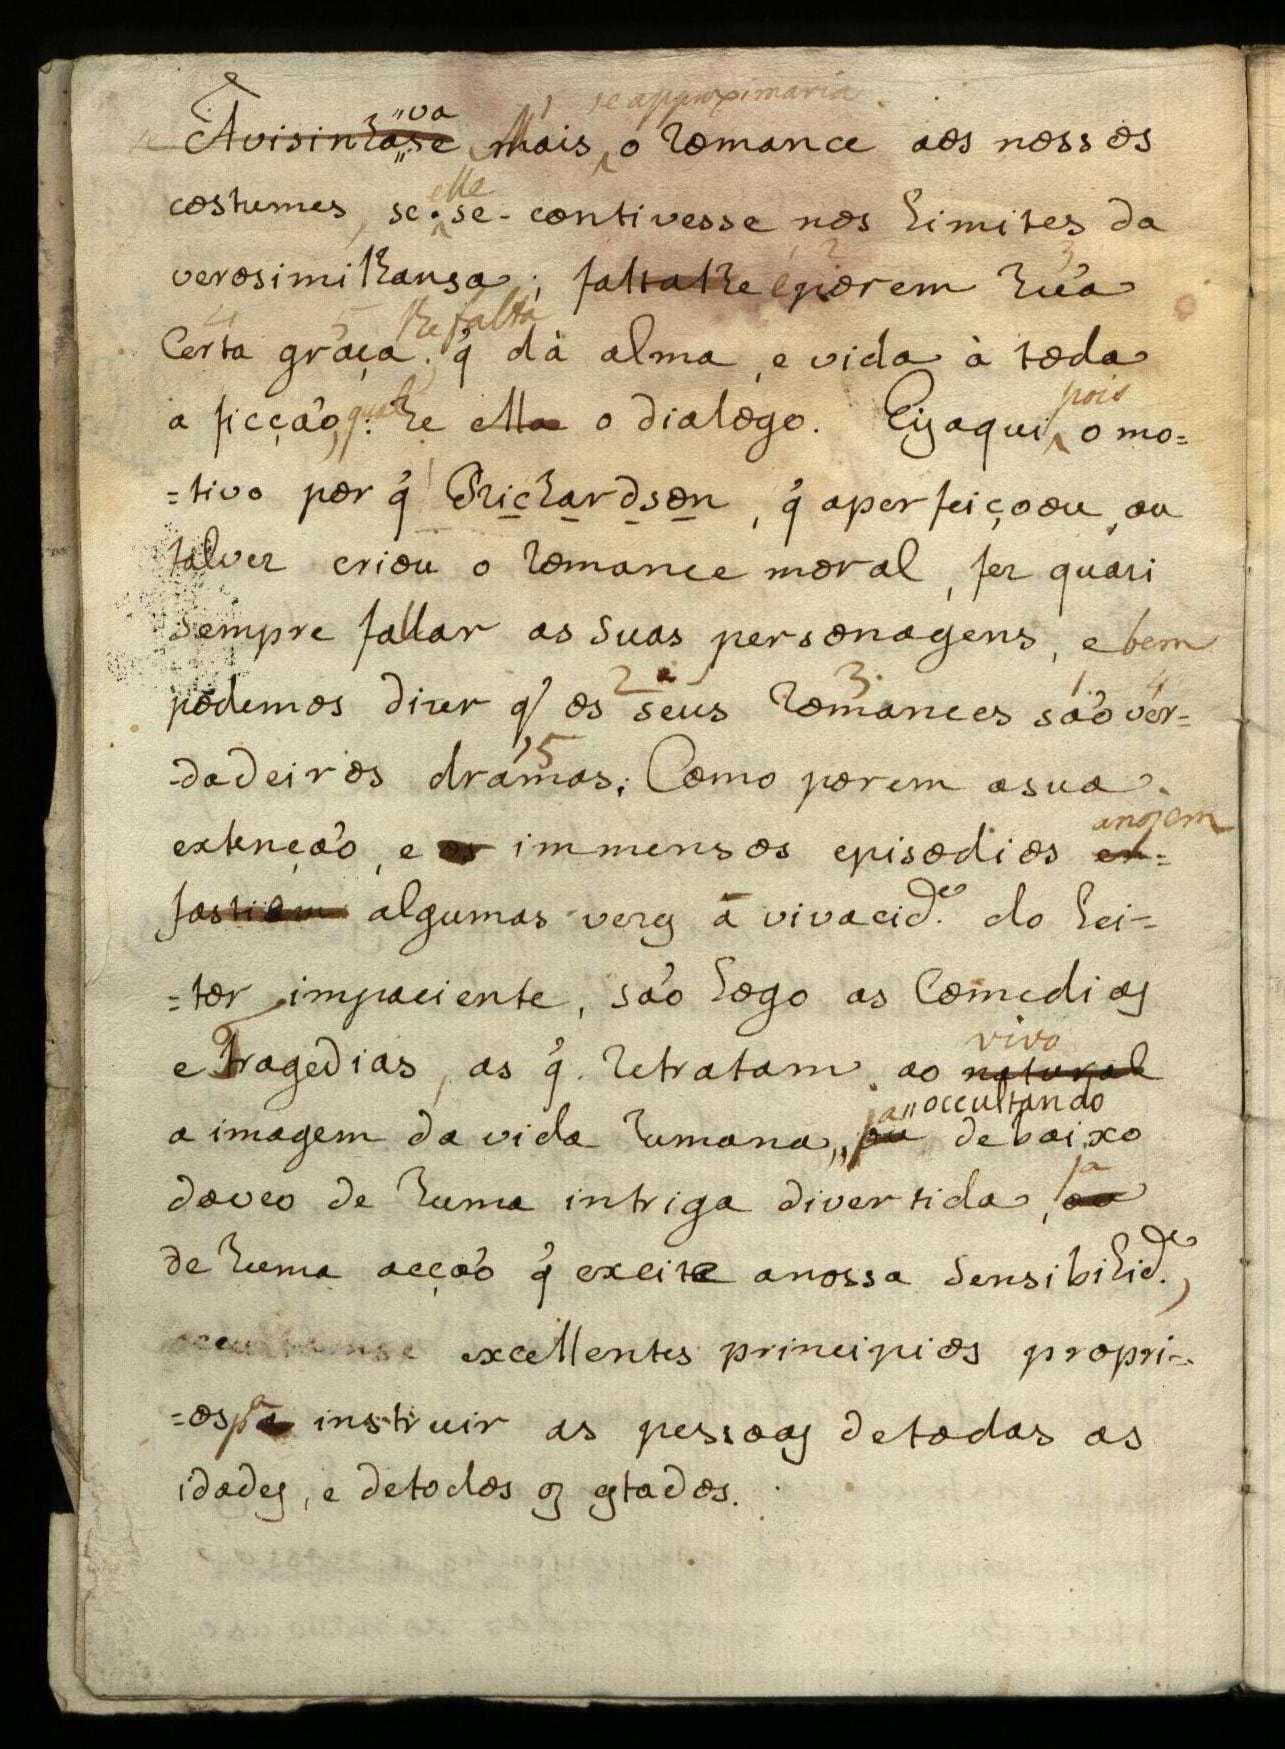 se approximaria
Avisinhase "va Mais o romance aos nossos
costumes, se elle se-contivesse nos limites da
verosimilhansa; faltalhe porem hũa
certa graça lhe falta q̃ dà alma, e vida à toda
a ficção, qual he ella o dialogo. Eis aqui pois o mo=
=tivo por q̃ Richardson, q̃ aperfeiçoou, ou
talvez criou o romance moral, fez quasi
sempre fallar as suas personagens, e bem
podemos dizer q̃ os seus romances são ver=
=dadeiros dramas; Como porem a sua
extenção, e os immensos episodios anojem en=
fastiam algumas vezes á vivacid.e do Lei=
=tor impaciente, são logo as Comedias
e Tragedias, as q̃ retratam ao natural vivo
a imagem da vida humana, ja ou "occultando debaixo
do veo de huma intriga divertida, ja ou
de huma acção q̃ excite a nossa Sensibilid.e,
excellentes principios propri=
=os p.a instruir as pessoas de todas as
idades, e de todos os estados.